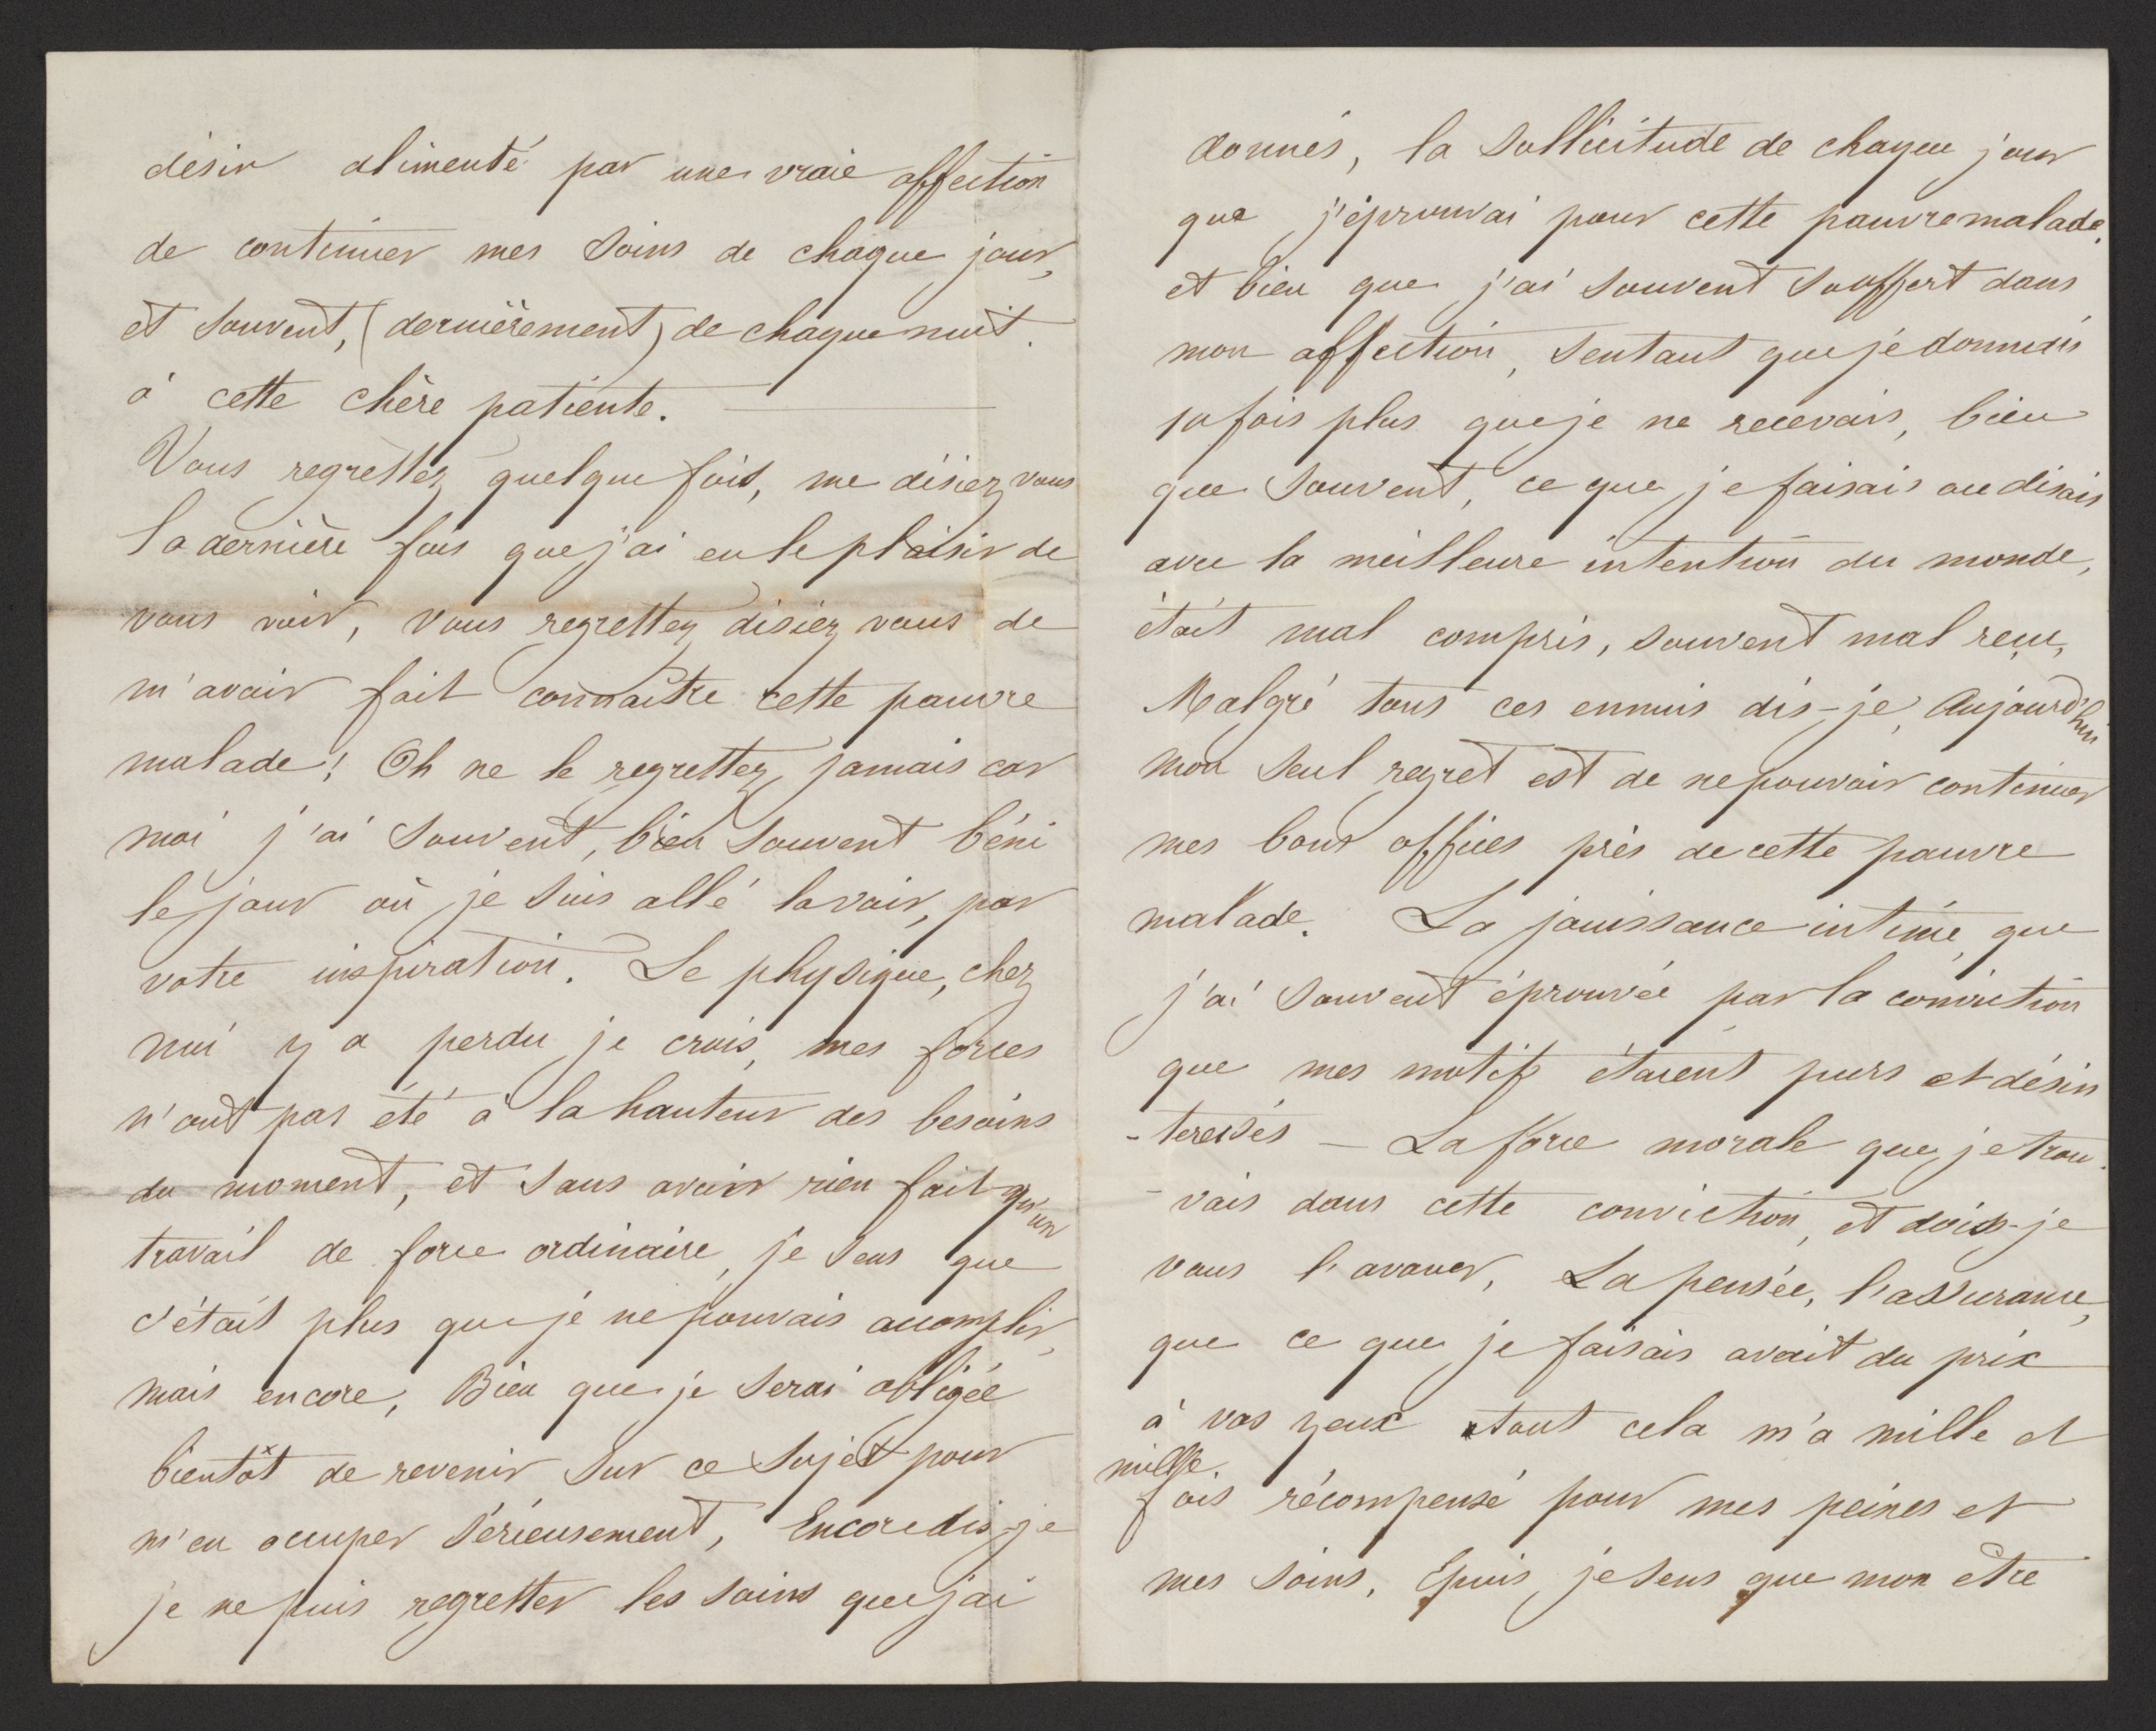 désir alimenté par une vraie affection
de continuer mes soins de chaque jour,
et souvent, (dernièrement) de chaque nuit.
à cette chère patiente. —
Vous regrettez quelque fois, me disiez vous
la dernière fois que j'ai eu le plaisir de
vous voir, vous regrettez disiez vous de
m'avoir fait connaître cette pauvre
malade! Oh ne le regrettez jamais car
moi j'ai souvent, bien souvent béni
le jour où je suis allé la voir, par
votre inspiration. Le physique, chez
moi y a perdu je crois, mes forces
n'ont pas été à la hauteur des besoins
du moment, et sans avoir rien fait qu'un
travail de force ordinaire, je sens que
c'était plus que je ne pouvais accomplir,
mais encore, Bien que je serai obligée
bientôt de revenir sur ce sujet pour
m'en occuper sérieusement, Encore dis-je
je ne puis regretter les soins que j'ai
donnés, la sollicitude de chaque jour
que j'éprouvai pour cette pauvre malade,
et bien que j'ai souvent souffert dans
mon affection, sentant que je donnais
10 fois plus que je ne recevais, bien
que souvent, ce que je faisais ou disais
avec la meilleure intention du monde,
était mal compris, souvent mal reçu,
Malgré tous ces ennuis dis-je, Aujourd'hui
mon seul regret est de ne pouvoir continuer
mes bons offices près de cette pauvre
malade. La jouissance intime, que
j'ai souvent éprouvée par la conviction
que mes motifs étaient purs et désin
-teressés — La force morale que je trou-
-vais dans cette conviction, et dois-je
vous l'avouer, La pensée, l'assurance,
que ce que je faisais avait du prix
à vos yeux tout cela m'a mille et
mille
fois récompensé pour mes peines et
mes soins, Epuis je sens que mon être